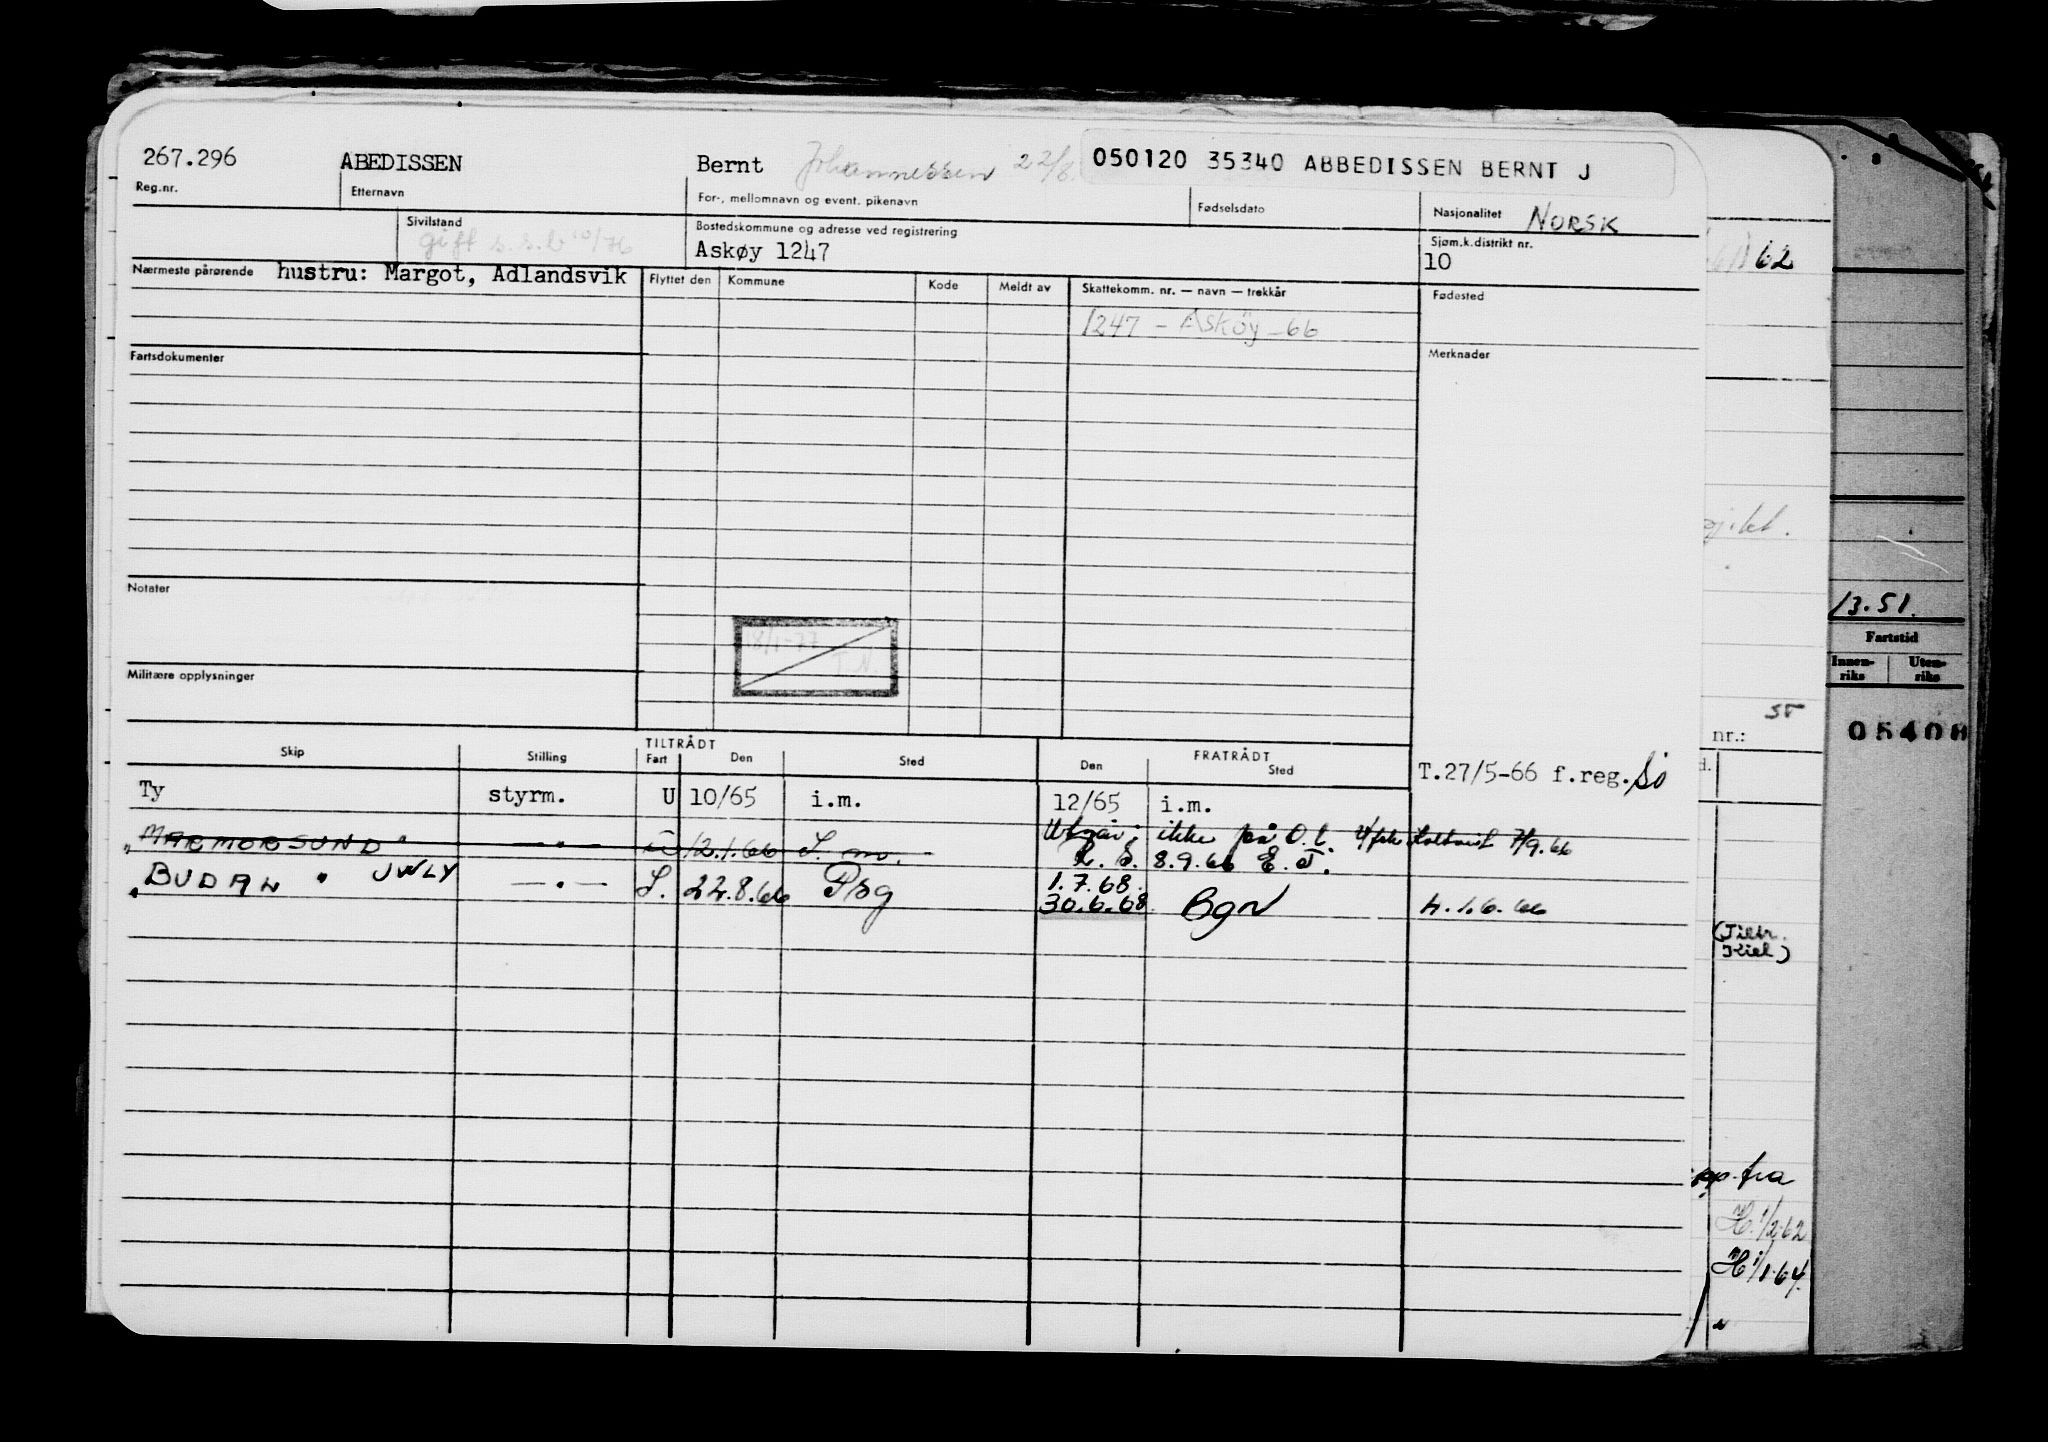 267.296 ABEDISSEN Bernt Johannessen 22/8 050120 35340 ABBEDISSEN BERNT J
Reg.nr. Etternavn For-, mellomnavn og event. pikenavn Fødselsdato Nasjonalitet NORSK
Sivilstand gift s.s.b 10/76 Bostedskommune og adresse ved registrering Sjøm.k.distrikt nr.
Askøy 1247 10
Nærmeste pårørende hustru: Margot, Adlandsvik Flyttet den Kommune Kode Meldt av Skattekomm. nr. — navn — trekkår Fødested
1247 - Askøy - 66
Fartsdokumenter Merknader
Notater
18/1-77
T.N.
Militære opplysninger
Skip Stilling TILTRÅDT FRATRÅDT
Fart Den Sted Den Sted
T.27/5-66 f.reg. Sø
Ty styrm. U 10/65 i.m. 12/65 i.m.
"MARMORSUND" — " — U 12.1.66 S. m. Utgår; ikke på O.l. 7/9.66
8.9.66 E.T.
"BUDAN" UWLY — " — S. 22.8.66 Psg 1.7.68
30.6.68 Bgn H. 1.6.66
62
13.51.
Fartstid
Innen-riks Uten-riks
55
nr.:
05408
d.
(Tiltr.
Kiel)
fra
H. 1/2.62
H 1/1.64.
"